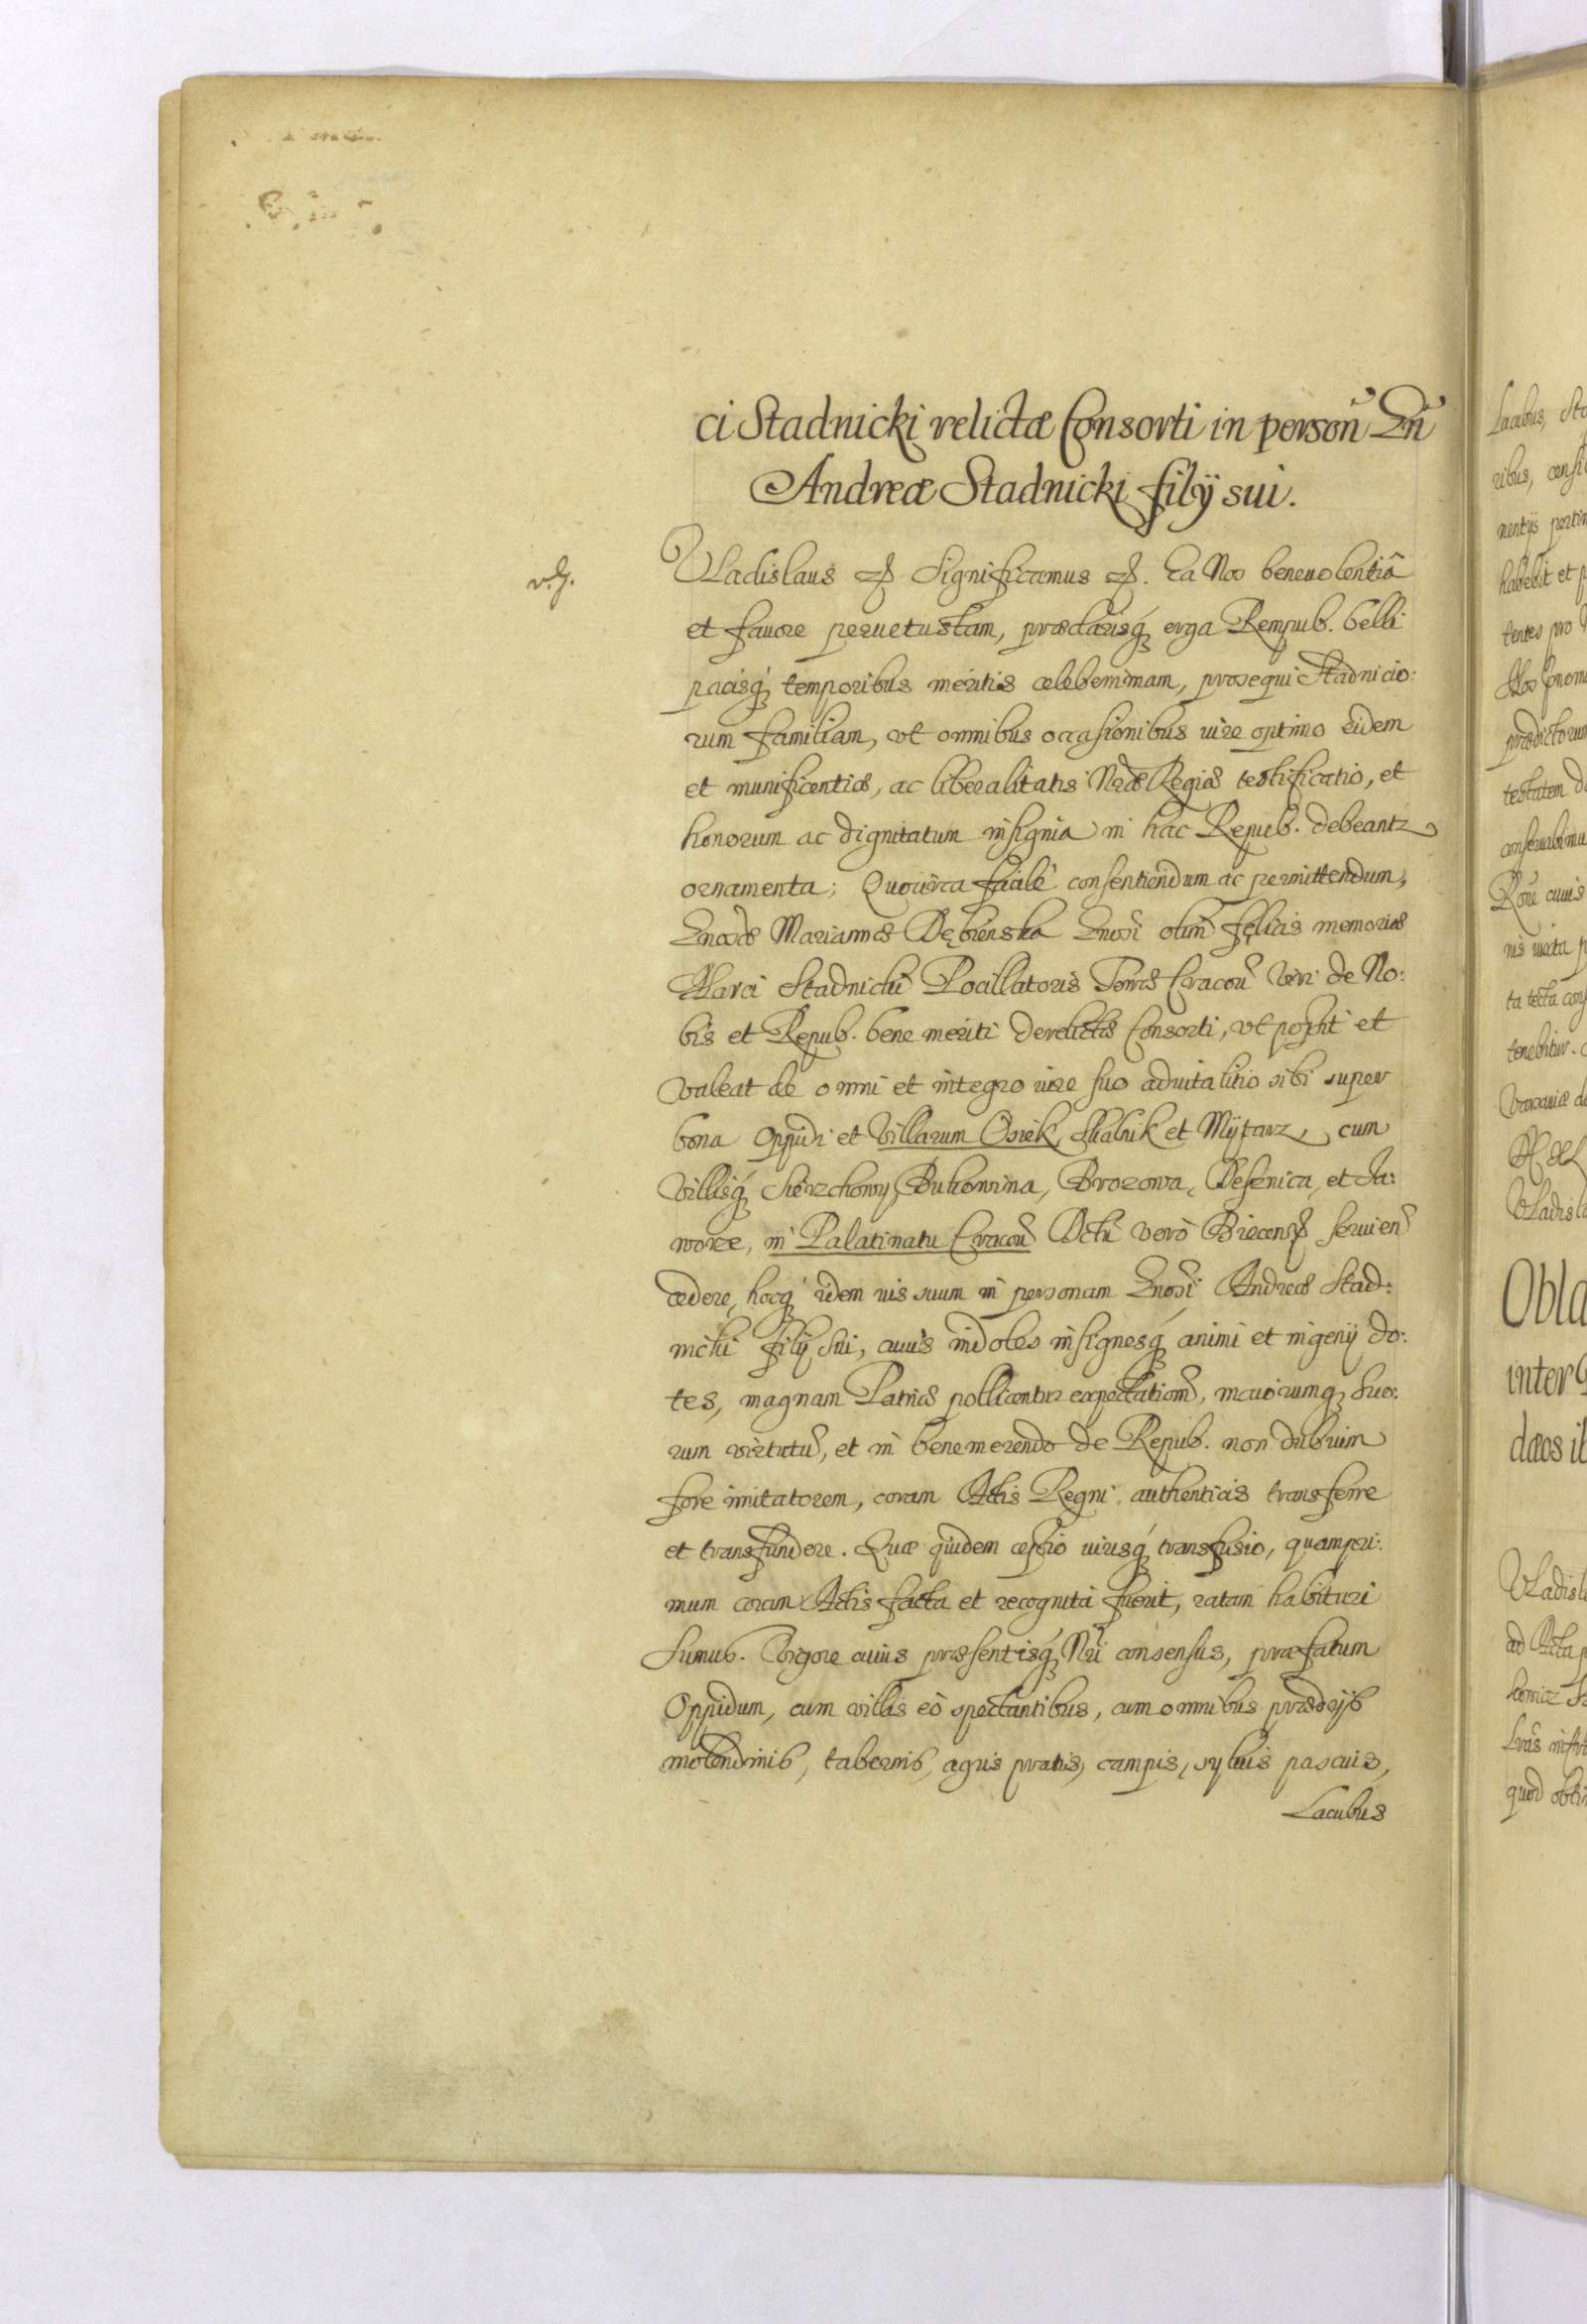 ci Stadnicki relictæ Consorti in person Gn
Andreæ Stadnicki filÿ sui.
Vladislaus &. Significamus &. Ea Nos beneuolentiâ
et fauore peruetustam, præclarisq́ erga Rempub. belli
pacisq́ temporibus meritis celeberrimam, prosequi Stadnicio:
rum familiam, vt omnibus occasionibus iure optimo eidem
et munificentiæ, ac liberalitatis Nræ Regiæ testificatio, et
honorum ac dignitatum insignia in hac Repub. debeantr
ornamenta; Quocirca facilè consentiendum ac permittendum,
Gnosæ Mariannæ Dębienska Gnosi olim fęlicis memoriæ
Marci Stadnicki Pocillatoris Terræ Cracou Viri de No:
bis et Repub. bene meriti derelictæ Consorti, vt possit et
valeat de omni et integro iure suo aduitalitio sibi super
bona Oppidi et Villarum Osiek, Skalnik et Mÿtarz, cum
Villisq́ Sierzchowy, Bukowina, Brozowa, Desznica, et Ia:
worze, in Palatinatu Cracou Dctu verò Biecens seruien
cedere, hocq́ idem ius suum in personam Gnosi Andreæ Stad:
nicki filÿ Sui, cuius indoles insignesq́ animi et ingenÿ do:
tes, magnam Patriæ pollicentur expectation, maiorumq Suo:
rum virtutu, et in benemerendo de Repub. non dubium
fore imitatorem, coram Actis Regni authenticis transferre
et transfundere. Quæ quidem cessio iurisq́ transfusio, quampri:
mum coram Actis facta et recognita fuerit, ratam habituri
Sumus. Vigore cuius præsentisq́ Nri consensus, præfatum
Oppidum, cum villis eò spectantibus, cum omnibus prædÿs
molendinis, tabernis, agris pratis, campis, syluis pascuis,
Lacubus
Lacubus,
ribus, censi
nentÿs pertin
habebit et p
tentes pro
prædictorum
testatem d
conseruabimu
cuius
nis iuxta p
ta tecta con
tenebitur.
Varsauiæ d
Vladisl
Obla
inter G
dæos il
Vladisl
ad Acta p
quod obti